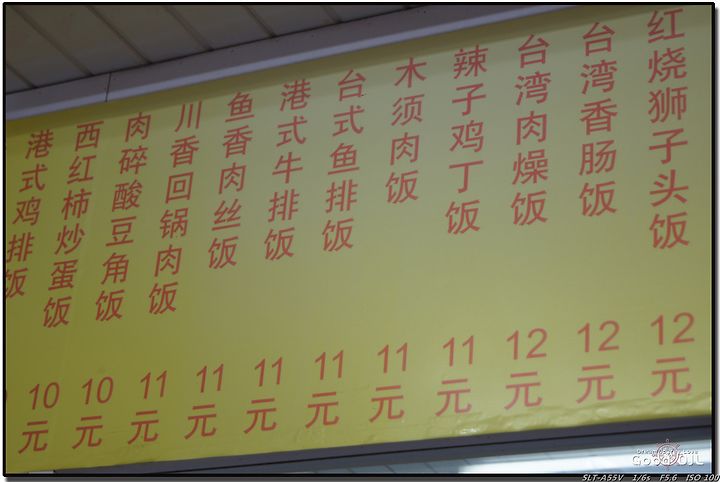 港式鸡排饭
西红柿炒蛋饭
10元
肉碎酸豆角饭
10元
川香回锅肉饭
11元
鱼香肉丝饭
11元
港式牛排饭
11元
台式鱼排饭
11元
木须肉饭
11元
辣子鸡丁饭
11元
台湾肉燥饭
12元
台湾香肠饭
12元
红烧狮子头饭
12元
SLT-A55V 1/6s F5.6 ISO 100